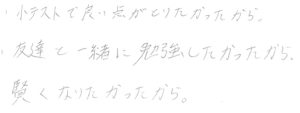 ・小テストで良い点がとりたかったから。
・友達と一緒に勉強したかったから、
賢くなりたかったから。